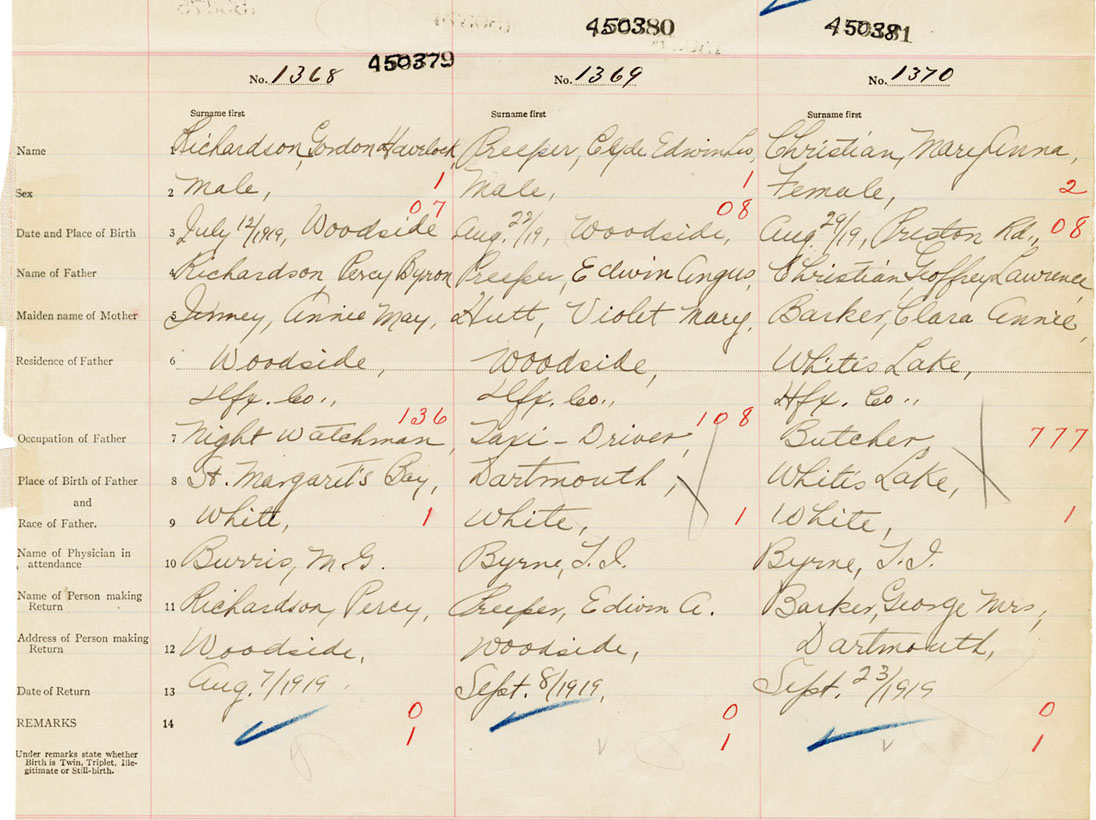 450379 450380 450381
No. 1368 No. 1369 No. 1370
Surname first Surname first Surname first
Name 1 Richardson, Gordon Havelock, Preeper, Clyde Edwin Leo, Christian, Mary Anna,
Sex 2 Male, 1 Male, 1 Female, 2
07 08 08
Date and Place of Birth 3 July 12/1919, Woodside Aug. 22/19, Woodside, Aug. 29/19, Preston Rd.,
Name of Father 4 Richardson Percy Byron Preeper, Edwin Angus, Christian, Geoffrey Lawrence,
Maiden name of Mother 5 Annie May, Hutt, Violet Mary, Barker, Clara Annie,
Residence of Father 6 Woodside, Woodside, Whites Lake,
Hfx. Co., Hfx. Co., Hfx. Co.,
136 108 777
Occupation of Father 7 Night Watchman, Taxi-Driver, Butcher,
Place of Birth of Father 8 St. Margaret's Bay, Dartmouth, Whites Lake,
and
Race of Father. 9 White, 1 White, 1 White, 1
Name of Physician in
attendance 10 Burris, M. G. Byrne, T. I. Byrne, T. I.
Name of Person making
Return 11 Richardson, Percy, Preeper, Edwin A. Barker, George Mrs,
Address of Person making
Return 12 Woodside, Woodside, Dartmouth,
Date of Return 13 Aug. 7/1919. Sept. 8/1919, Sept. 23/1919
REMARKS 14 0 0 0
1 1 1
Under remarks state whether
Birth is Twin, Triplet, Ille-
gitimate or Still-birth.